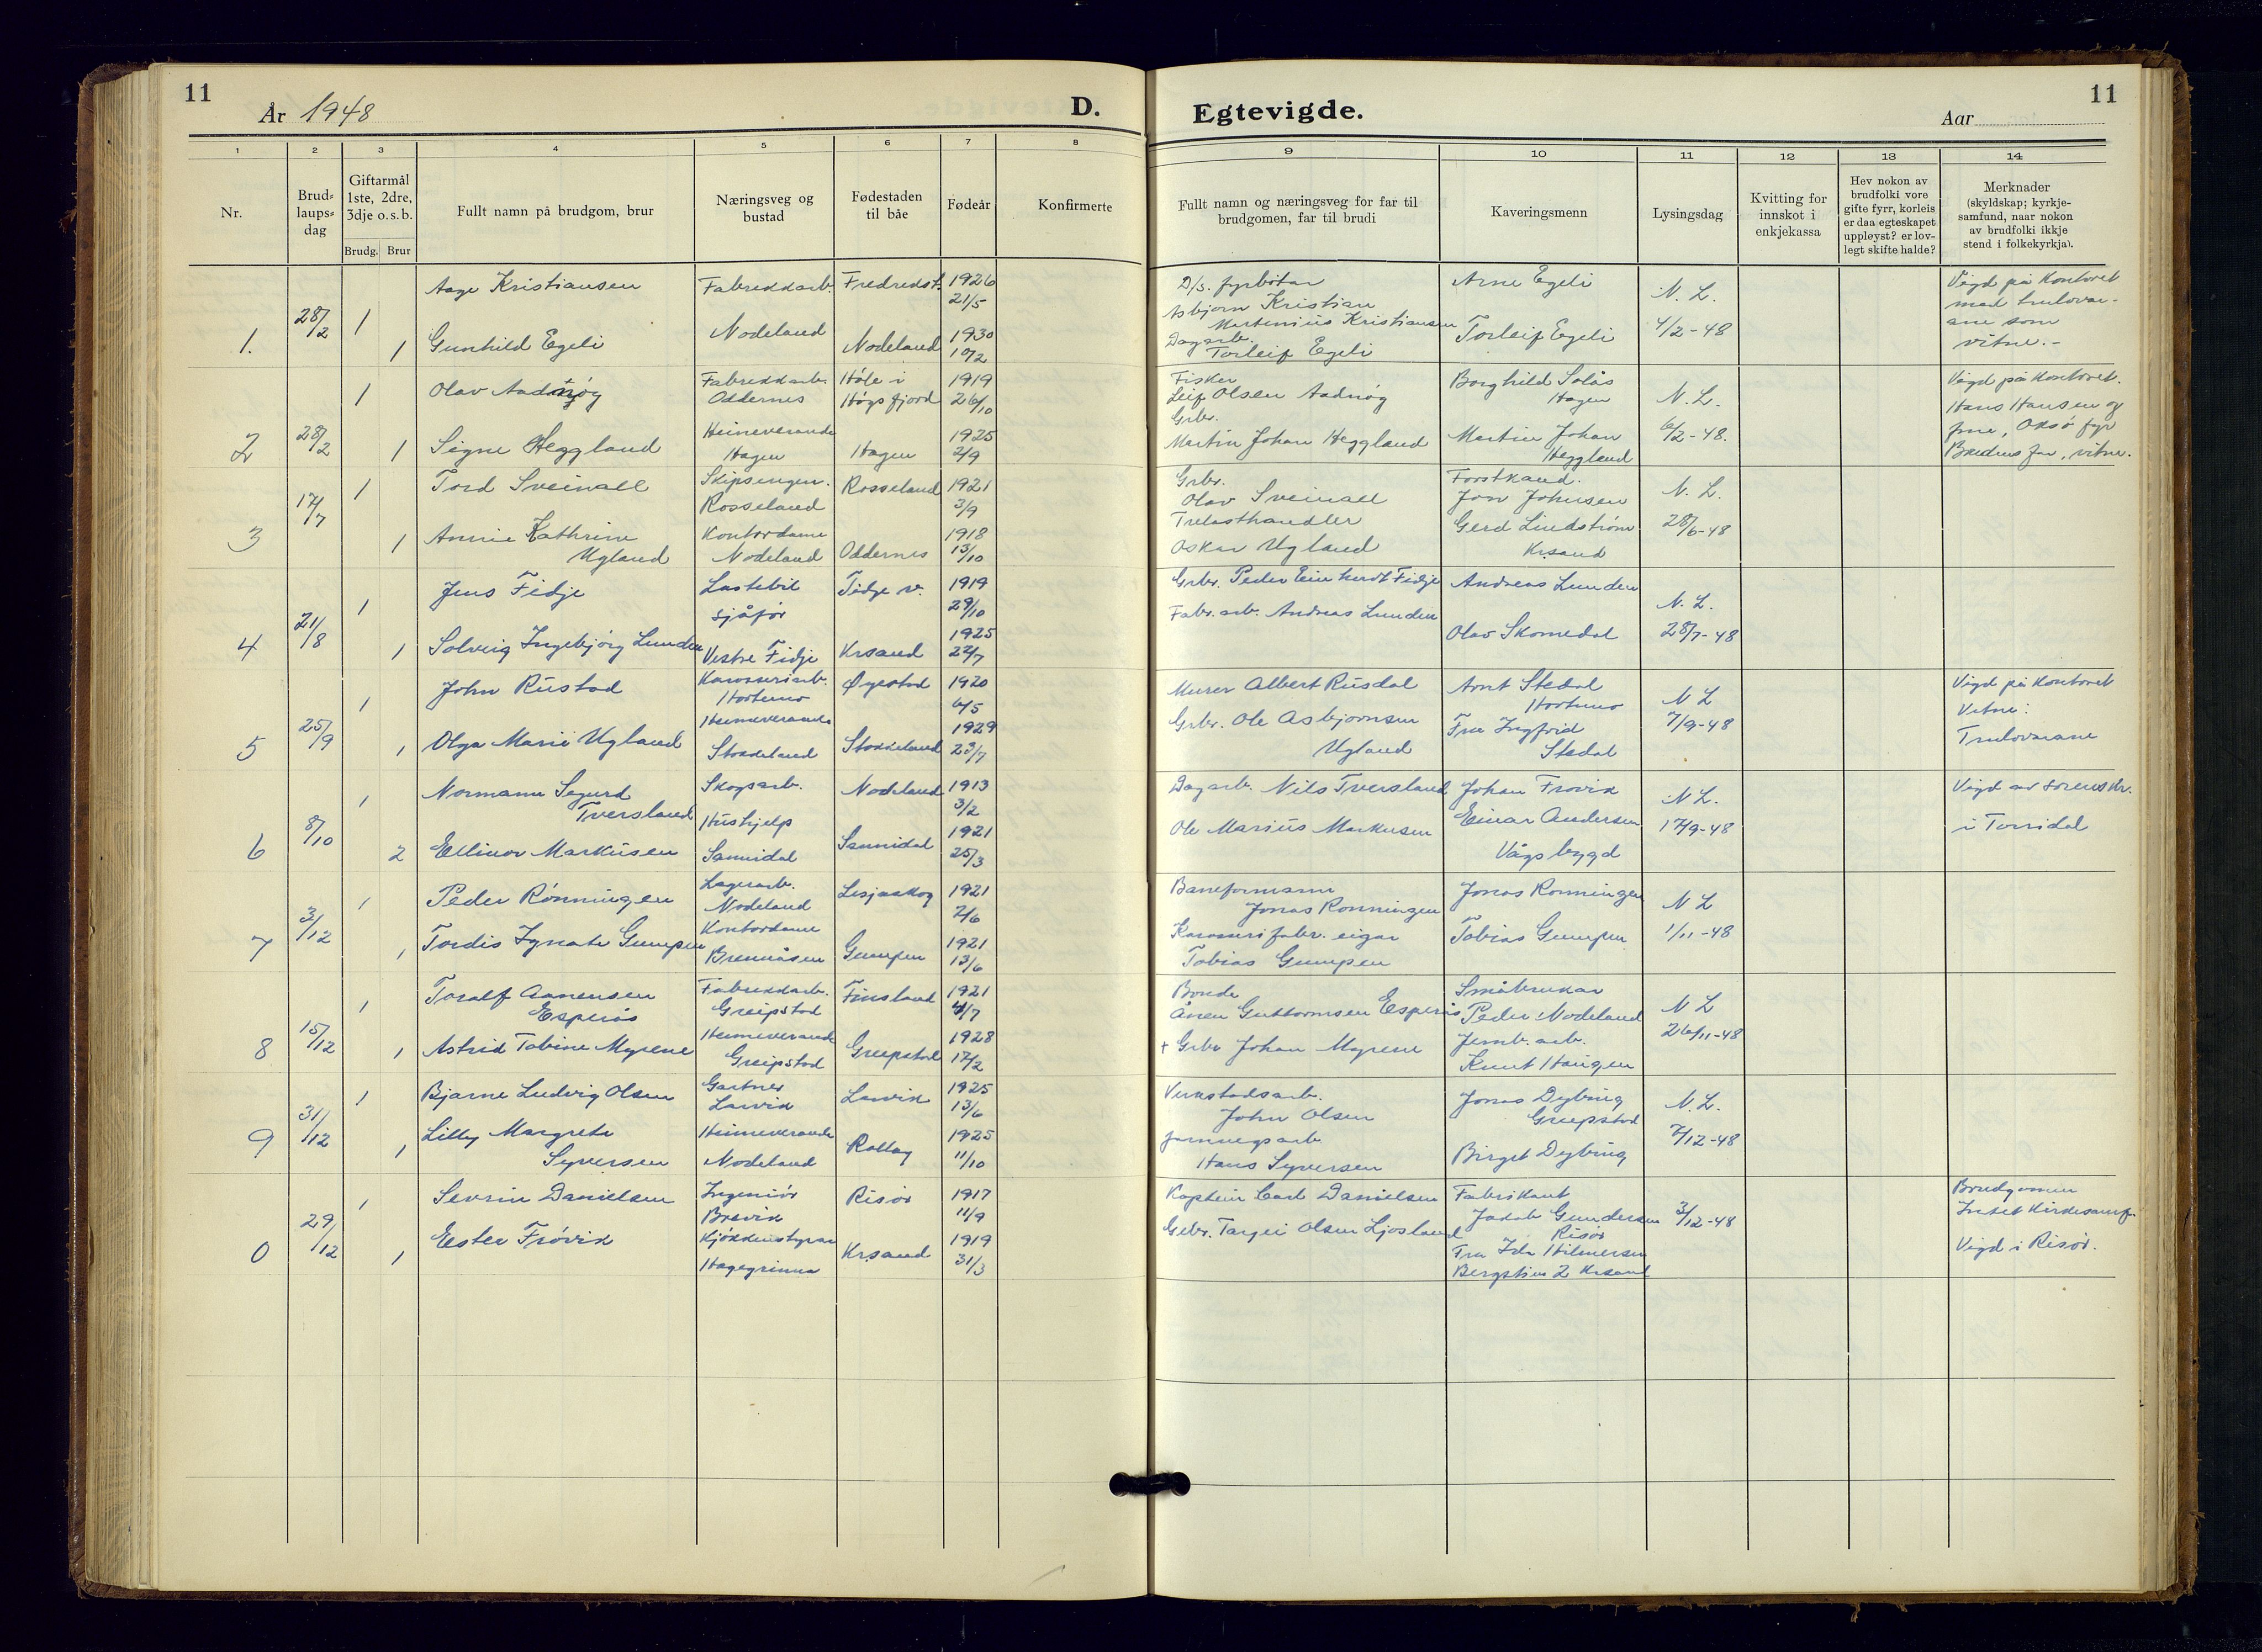 11
År 1948
D.
Egtevigde.
Aar
11
1
2
3
4
5
6
7
8
9
10
11
12
13
14
Nr.
Brud=
laups=
dag
Giftarmål
1ste, 2dre,
3dje o.s.b.
Brudg. Brur
Fullt namn på brudgom, brur
Næringsveg og
bustad
Fødestaden
til båe
Fødeår
Konfirmerte
Fullt namn og næringsveg for far til
brudgomen, far til brudi
Kaveringsmenn
Lysingsdag
Kvitting for
innskot i
enkjekassa
Hev nokon av
brudfolki vore
gifte fyrr, korleis
er daa egteskapet
uppløyst? er lov-
legt skifte halde?
Merknader
(skyldskap; kyrkje-
samfund, naar nokon
av brudfolki ikkje
stend i folkekyrkja).
1.
28/2
1
1
Aage Kristiansen
Gunhild Egeli
Fabrikkarb.
Nodeland
Fredrikst.
Nodeland
1926
21/5
1930
10/2
D/s. fyrbøtar
Asbjørn Kristian
Martinius Kristiansen
Dagarb.
Torleif Egeli
Arne Egeli
Torleif Egeli
N. L.
4/2-48
Vigd på kontoret
med trulovar-
ane som
vitne.-
2
28/2
1
1
Olav Aadnøy
Signe Heggland
Fabrikkarb.
Oddernes
Heimeverande
Hagen
Høle i
Høgsfjord
Hagen
1919
26/10
1925
2/9
Fisker
Leif Olsen Aadnøy
Grbr.
Martin Johan Heggland
Borghild Solås
Hagen
Martin Johan
Heggland
N. L.
6/2-48.
Vigd på kontoret.
Hans Hansen og
frue, Oksø fyr
Brudens far, vitne.
3
17/7
1
1
Tord Sveinall
Annie Kathrine
Ugland
Skipsengen.
Rosseland
Kontordame
Nodeland
Rosseland
Oddernes
1921
3/9
1918
13/10
Grbr.
Olav Sveinall
Trelasthandler
Oskar Ugland
Forstkand.
Jon Johnsen
Gerd Lindstrøm
Krsand
N. L.
28/6-48
4
21/8
1
1
Jens Fidje
Solveig Ingebjørg Lunden
Lastebil
sjåfør
Vestre Fidje
Fidje v.
Krsand
1919
29/10
1925
22/7
Grbr. Peder Einhardt Fidje
Fabr. arb. Andreas Lunden
Andreas Lunden
Olav Skomedal
N. L.
28/7-48
5
25/9
1
1
John Rustad
Olga Marie Ugland
Karosseriarb.
Hortemo
Heimeverande
Stokkeland
Øyestad
Stokkeland
1920
6/5
1929
23/7
Murer Albert Rusdal
Grbr. Ole Asbjørnsen
Ugland
Arnt Stedal
Hortemo
Fru Ingfrid
Stedal
N L
7/9-48
Vigd på kontoret
Vitne:
Trulovarane
6
8/10
1
2
Normann Sigurd
Tversland
Ellinor Markusen
Skogsarb.
Hushjelp
Sannidal
Nodeland
Sannidal
1913
3/2
1921
25/3
Dagarb. Nils Tversland
Ole Marius Markusen
Johan Frøvik
Einar Andersen
Vågsbygd
N L.
17/9-48
Vigd av sorenskr.
i Torridal
7
3/12
1
1
Peder Rønningen
Tordis Synøve Gumpen
Lagerarb.
Nodeland
Kontordame
Brennåsen
Lesjaskog
Gumpen
1921
2/6
1921
13/6
Baneformann
Jonas Rønningen
Karosserifabr. eigar
Tobias Gumpen
Jonas Rønningen
Tobias Gumpen
N L
1/11-48
8
15/12
1
1
Toralf Aanensen
Esperås
Astrid Tobine Myrene
Fabrikkarb.
Greipstad
Heimeverande
Greipstad
Finsland
Greipstad
1921
4/7
1928
17/2
Bonde
Ånen Guttormsen Esperås
+ Grbr Johan Myrene
Småbrukar
Peder Nodeland
Jernb. arb.
Knut Haugen
N L
26/11-48
9
31/12
1
1
Bjarne Ludvig Olsen
Lilly Margrete
Syversen
Gartner
Larvik
Heimeverande
Nodeland
Larvik
Rollag
1925
13/6
1925
11/10
Verkstadsarb.
John Olsen
Jarnvegsarb
Hans Syversen
Jonas Dybing
Greipstad
Birgit Dybing
N. L.
7/12-48
0
29/12
1
1
Severin Danielsen
Ester Frøvik
Ingeniør
Brevik
Kjøkkenstyrar
Hægegrinna
Risør
Krsand
1917
11/9
1919
31/3
Kaptein Carl Danielsen
Grbr. Tarjei Olsen Ljosland
Fabrikant
Jakob Gundersen
Risør
Fru Ida Hilmersen
Bergstien 2 Krsand
3/12-48
Brudgomen
Intet kirkesamf.
Vigd i Risør.